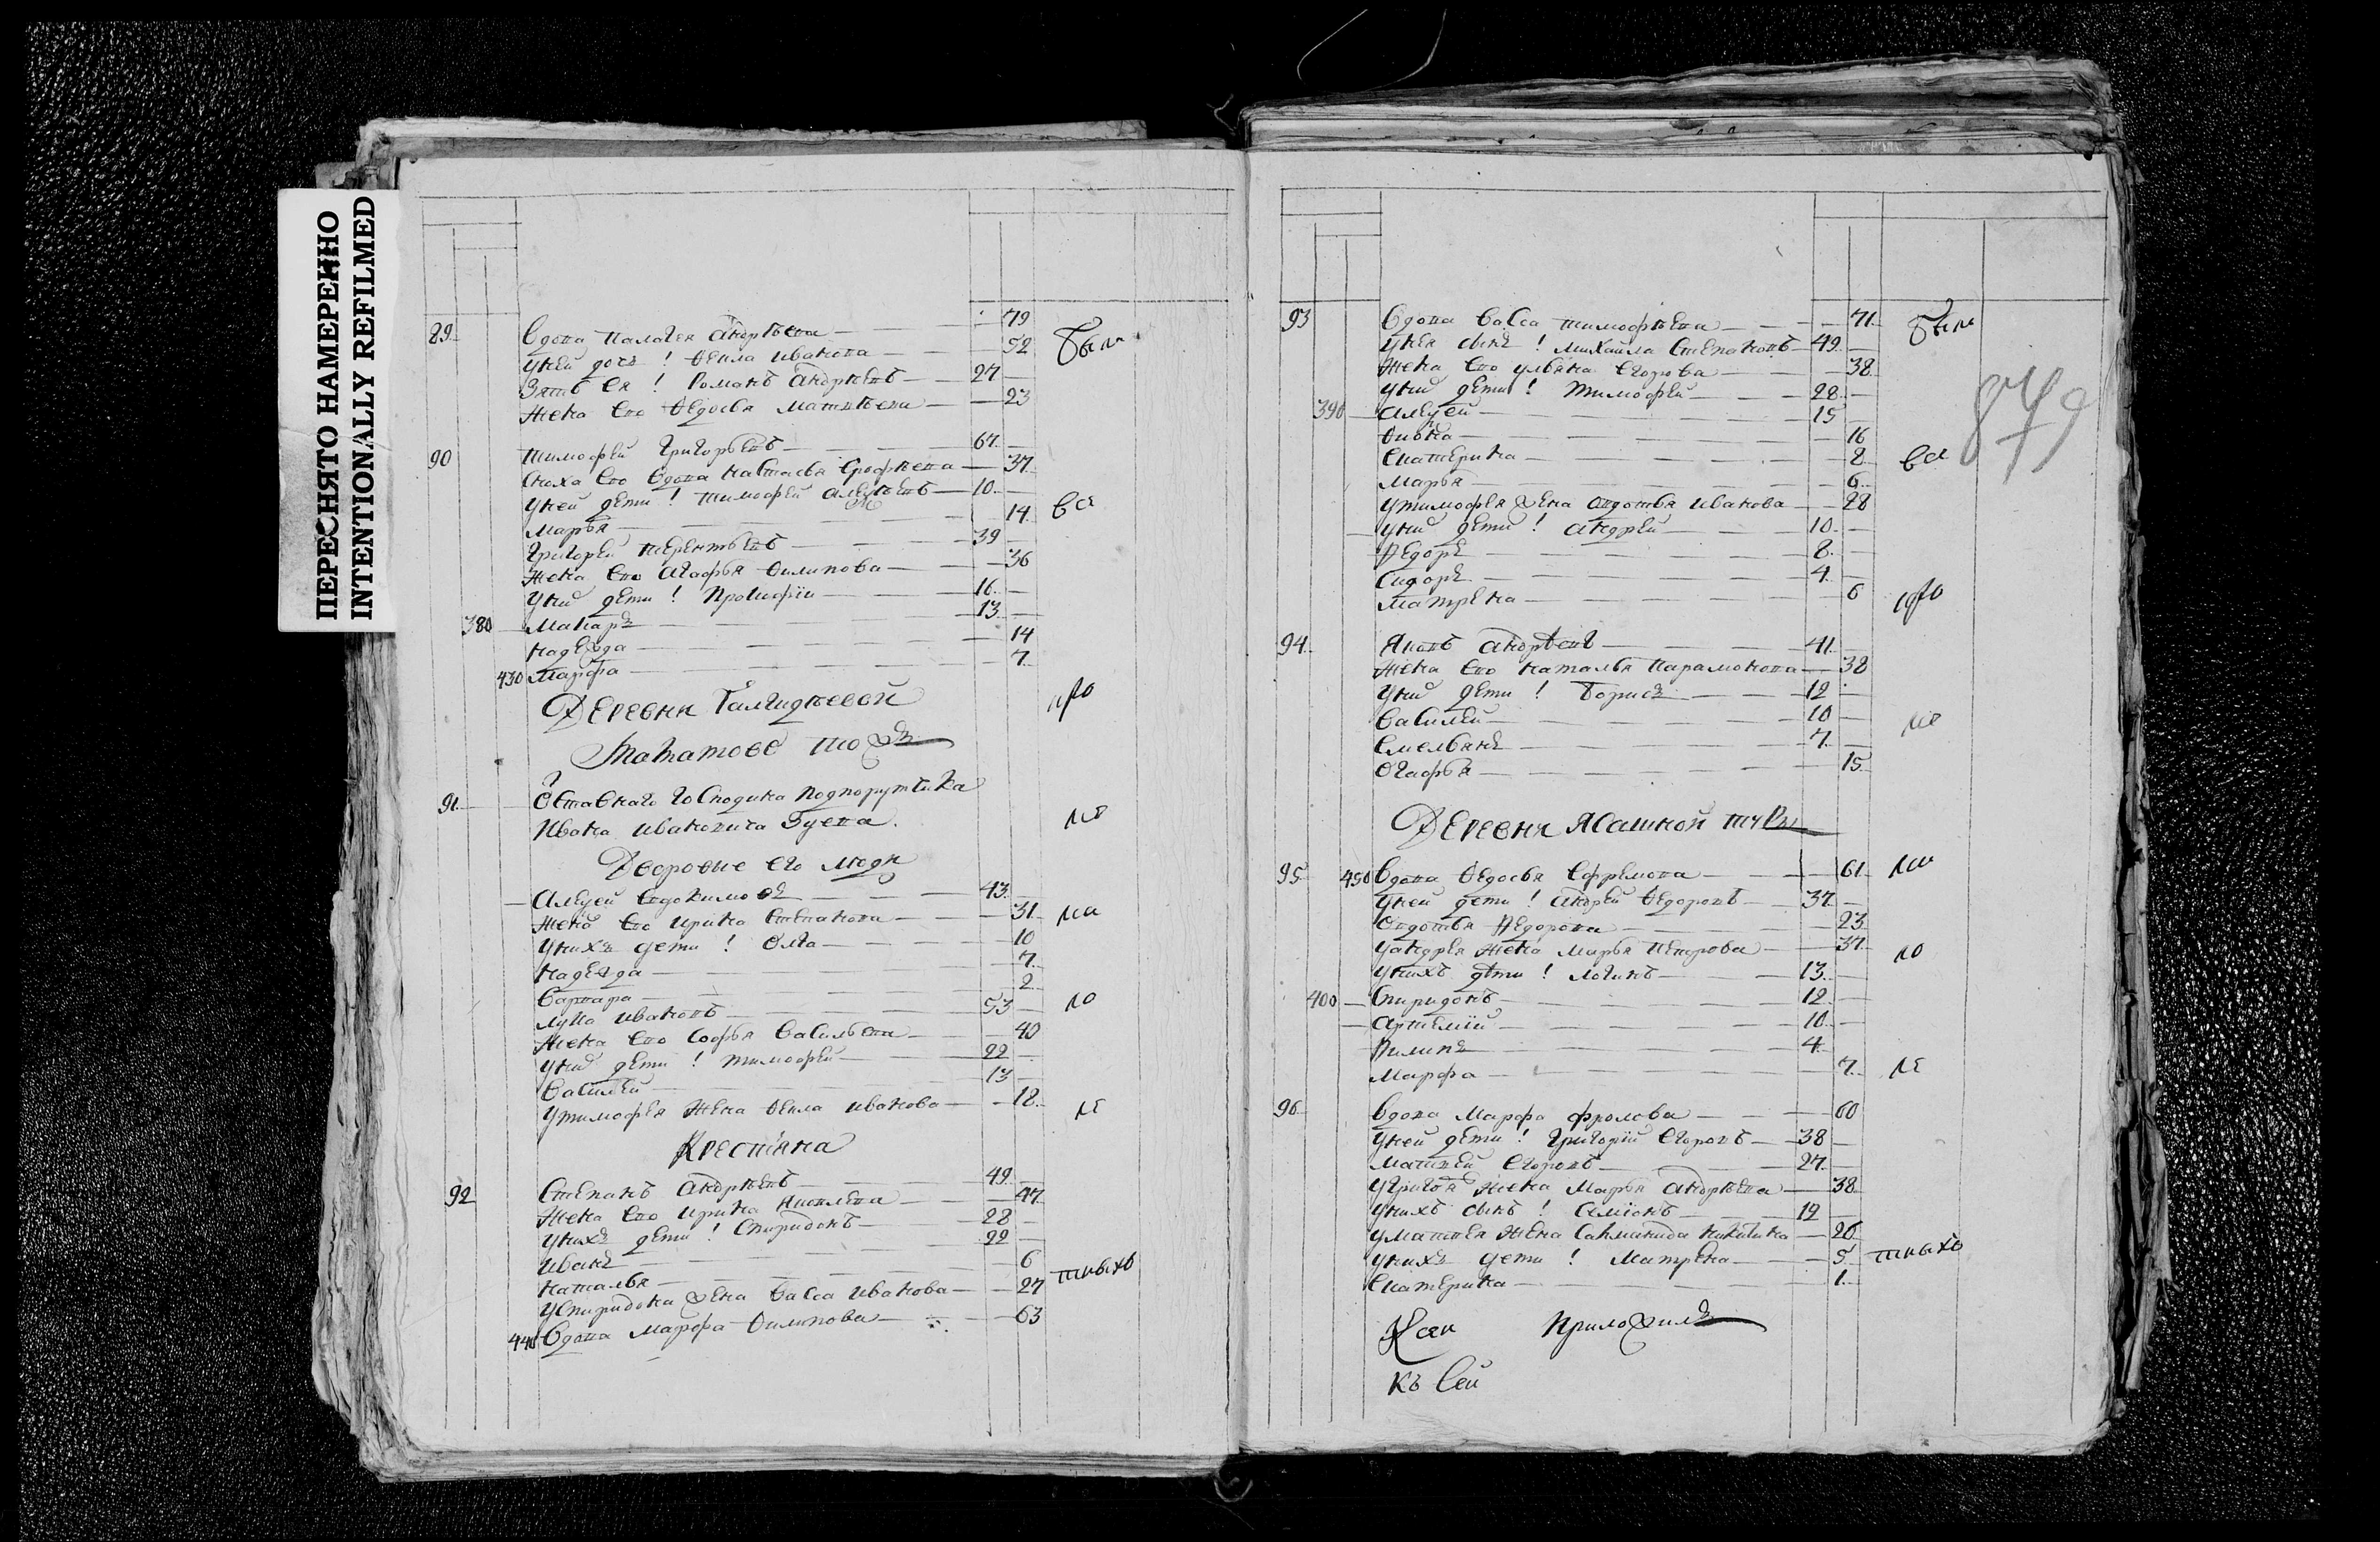 ПЕРЕСНЯТО НАМЕРЕННО
INTENTIONALLY REFILMED
89 Вдова Палагея Андрѣева 79 были
У ней дочь ! Фекла Иванова 52
Зять Ея ! Романъ Андрѣевъ 27
Жена Его Федосья Матвѣева 23
90 Тимофей Григорьевъ 67
Сноха Его Вдова Настасья Ерофѣева 37
У ней дети ! Тимофей Алеѯѣевъ 10 все
Марья 14
Григорей Терентьевъ 39
Жена Его Агафья Филипова 36
У них дети ! Прокофiй 16
380 Макаръ 13
Надежда 14
430 Марфа 7
Деревни Галчидѣевой про
Токатово тожъ
91 Отставнаго Господина Подпорутчика
Ивана Ивановича Гуева.
Дворовые его люди
Алеѯей Евдокимовъ 43
Жена Его Ирина Степанова 31
У нихъ дети ! Олга 10
Надежда 7
Варвара 2
Лука Ивановъ 53
Жена Его Софья Васильева 40
У них дети ! Тимофей 22
Василей 13
У Тимофея Жена Фекла Иванова 18
Крестьяна
92 Степанъ Андрѣевъ 49
Жена Его Ирина Яковлева 47
У нихъ дети ! Спиридонъ 28
Иванъ 22
Наталья 6
У Спиридона Жена Васса Иванова 27
440 Вдова Марфа Филипова 63
93 Вдова Васса Тимофѣева 71 были
У нея сынъ ! Михайла Степановъ 49
Жена Его Ульяна Егорова 38
У них дети ! Тимофей 28
390 Алеѯей 15
Фивка 16
Екатерина 8 все
Марья 6
У Тимофея Жена Авдотья Иванова 28
У них дети ! Андрей 10
Федоръ 8
Сидоръ 4
Матрена 6 про
94 Яковъ Андрѣевъ 41
Жена Его Наталья Парамонова 38
У них дети ! Борисъ 12
Василей 10
Емельянъ 7
Огафья 15
Деревни Ясашной
95 450 Вдова Федосья Ефремова 61
У ней дети ! Андрей Федоровъ 37
Овдотья Федорова 23
У Андрея Жена Марья Петрова 37
У нихъ дѣти ! Логинъ 13
400 Спиридонъ 12
Артемiй 10
Филипъ 4
Марфа 7
96 Вдова Марфа Фролова 60
У ней дети ! Григорiй Егоровъ 38
Матвей Егоровъ 27
У Григоя Жена Марья Андрѣева 38
У нихъ сынъ ! Семiонъ 12
У Матвея Жена Никитина 26
У нихъ дети ! Матрена 5
Екатерина 1
Приложилъ
Къ Сей
879